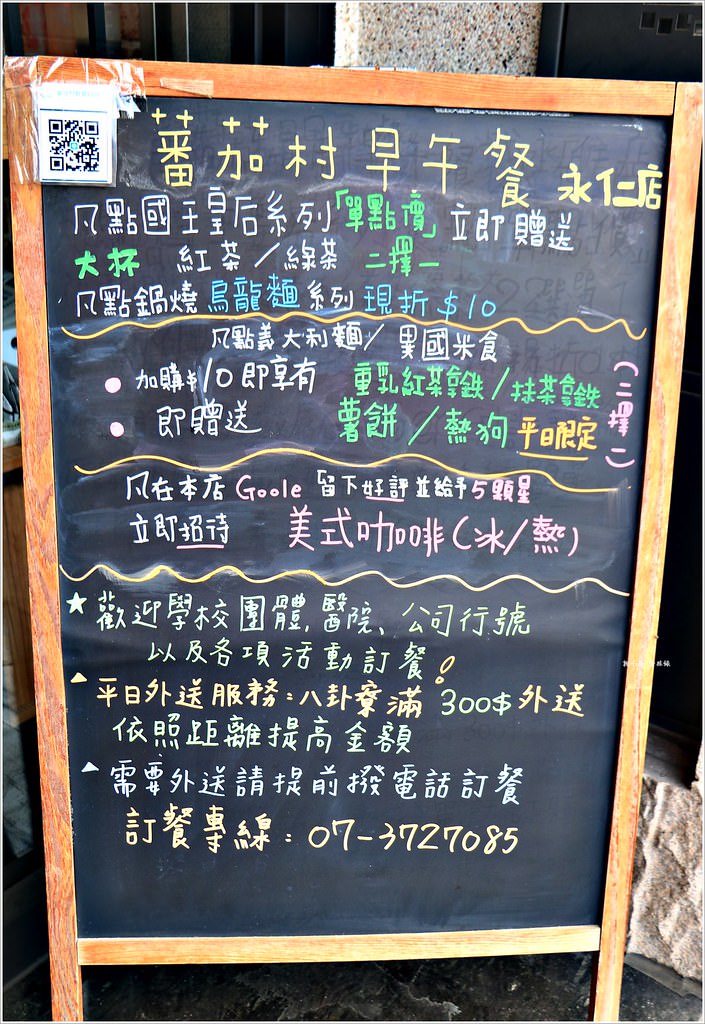 蕃茄村早午餐 永仁店
凡點國王皇后系列「單點價」立即贈送
大杯 紅茶/綠茶 二擇一
凡點鍋燒烏龍麵系列現折$10
凡點義大利麵/異國米食
• 加購$10即享有 重乳紅茶拿鐵/抹茶拿鐵
• 即贈送 薯餅/熱狗 平日限定
(二擇一)
凡在本店Goole留下好評並給予5顆星
立即招待 美式咖啡(冰/熱)
★歡迎學校團體,醫院、公司行號
以及各項活動訂餐!
▲平日外送服務:八卦寮滿300$外送
依照距離提高金額
▲需要外送請提前撥電話訂餐
訂餐專線:07-3727085